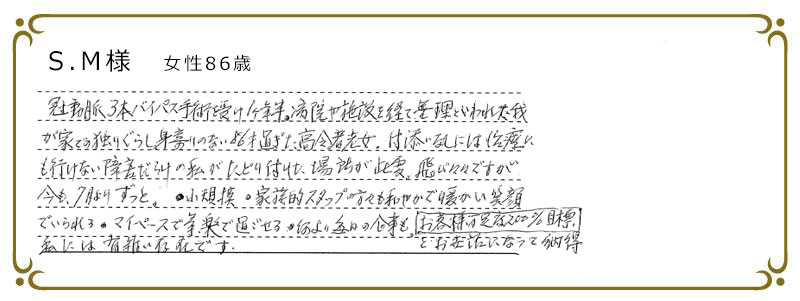 S.M様 女性86歳
冠動脈3本バイパス手術を受け1年半。病院や施設を経て無理といわれた我
が家での独りぐらし身寄りのない86才過ぎた高令者老女。付添いなしには治療に
も行けない障害だらけの私がたどり付けた場所が此処。飛び々々ですが
今も、7月よりずっと。 ●小規模 ●家族的スタッフの方々も和やかで暖かい笑顔
でいられる ●マイペースで気楽で過ごせる ●何より毎日の食事も。お客様満足度200%目標
私には有難い存在です。 とお世話になって納得